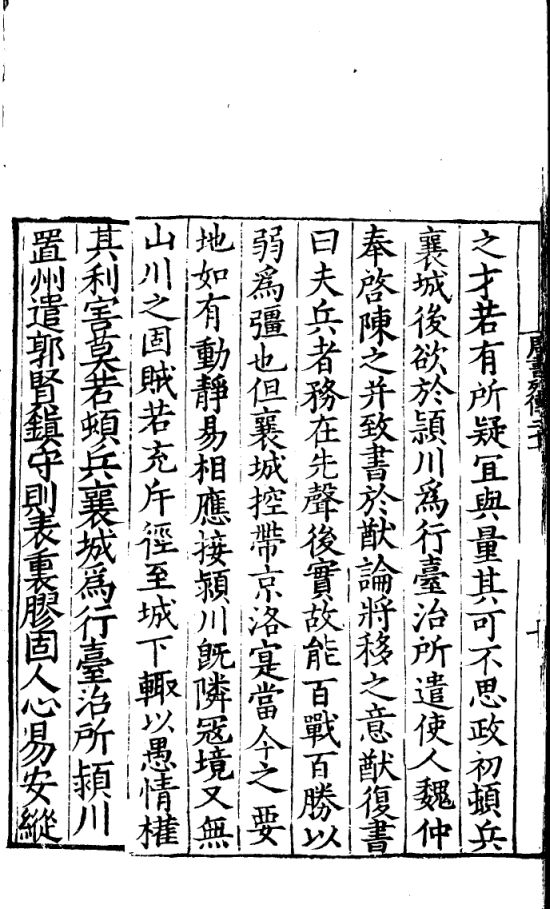 之才若有所疑宜與量其可不思政初頓兵
襄城後欲於頴川爲行臺治所遣使人魏仲
奉啓陳之并致書於猷論將移之意猷復書
曰夫兵者務在先聲後實故能百戰百勝以
弱爲彊也但襄城控帶京洛寔當今之要
地如有動靜易相應接頴川旣隣寇境又無
山川之固賊若充斥徑至城下輙以愚情權
其利害莫若頓兵襄城爲行臺治所頴川
置州遣郭賢鎮守則表裏膠固人心易安縱